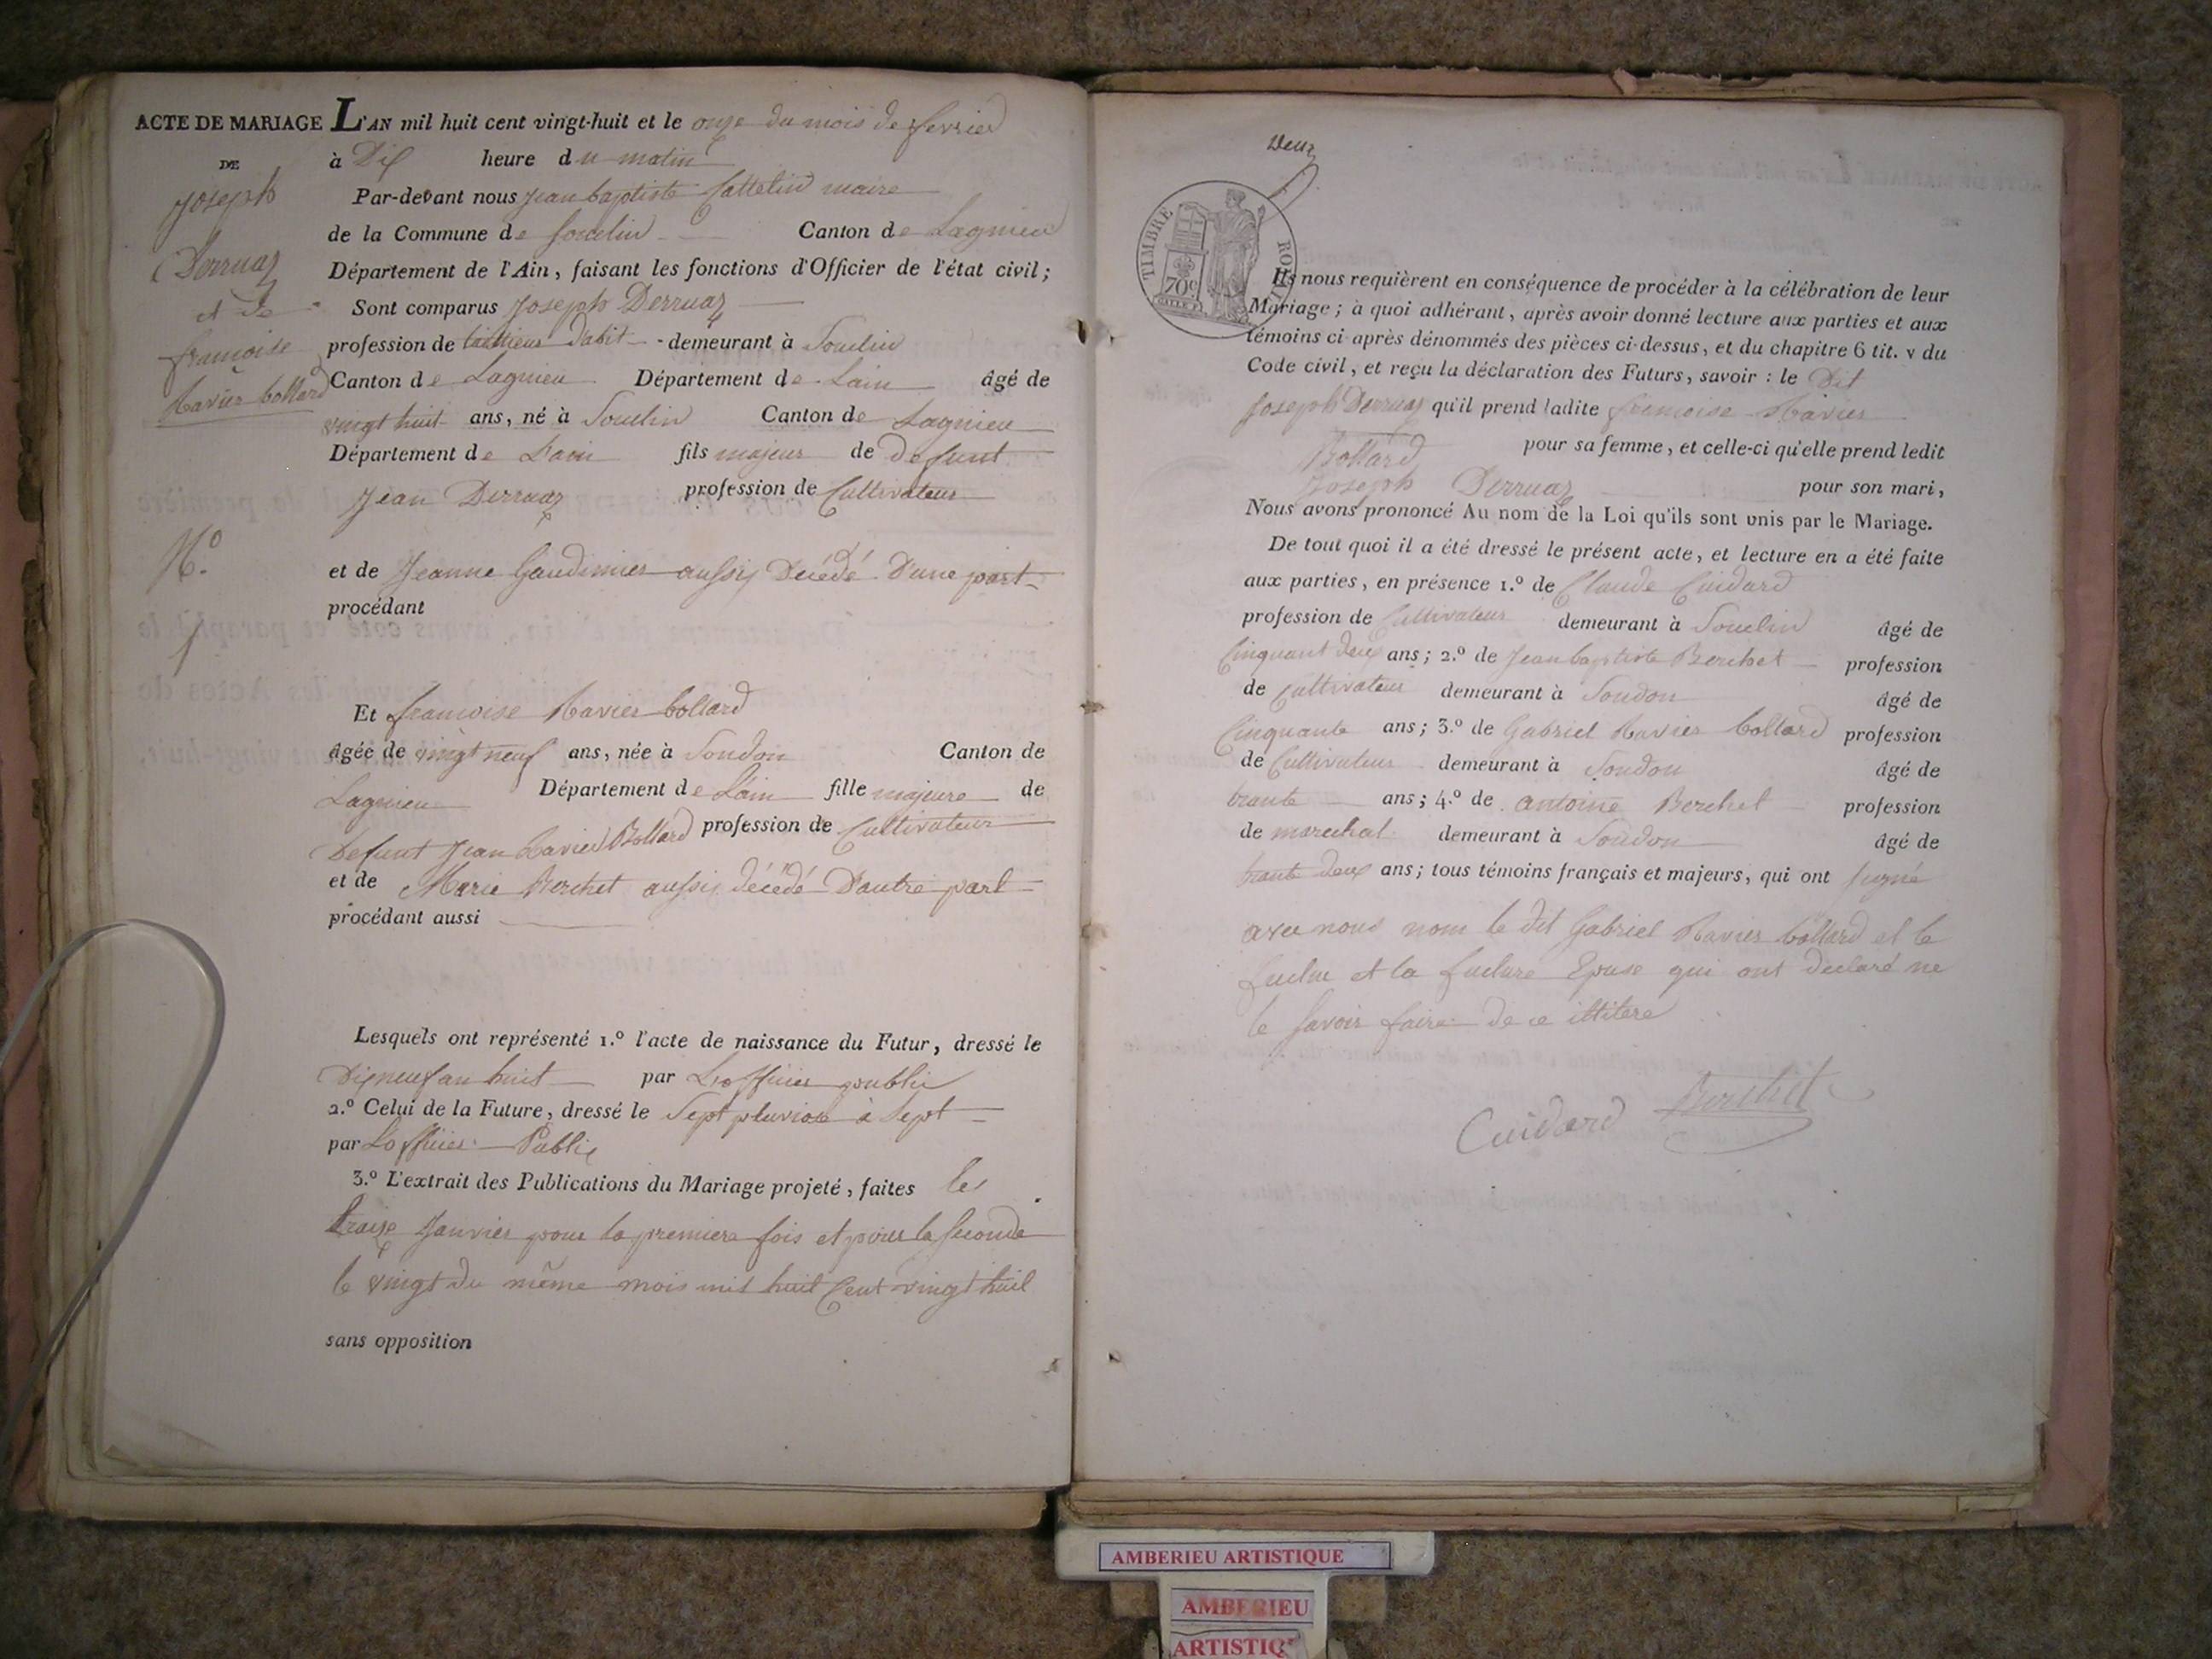 ACTE DE MARIAGE L'AN mil huit cent vingt-huit et le onze du mois de fevrier
DE
à Dix heure du matin
Joseph
Derruaz
et de
francoise
Ravier bollard
N.º
1
Par-devant nous Jean baptiste Cattelin maire
de la Commune de Souclin Canton de Lagnieu
Département de l'Ain, faisant les fonctions d'Officier de l'état civil;
Sont comparus Joseph Derruaz
profession de tailleur dabit demeurant à Souclin
Canton de Lagnieu Département de Lain âgé de
vingt huit ans, né à Souclin Canton de Lagnieu
Département de Lain fils majeur de defunt
Jean Derruaz profession de Cultivateur
et de Jeanne Gaudimier aussy Décédé D'une part
procédant
Et francoise Ravier bollard
âgée de vingt neuf ans, née à Soudon Canton de
Lagnieu Département de Lain fille majeure de
Defunt Jean Ravier Bollard profession de Cultivateur
et de Marie Berchet aussi décédé D'autre part
procédant aussi
Lesquels ont représenté 1.º l'acte de naissance du Futur, dressé le
Dixneuf an huit par Lofficier public
2.º Celui de la Future, dressé le Sept pluviose à Sept
par Lofficier Public
3.º L'extrait des Publications du Mariage projeté, faites les
traize Janvier pour la premiere fois et pour la seconde
le vingt du même mois mil huit Cent vingt huit
sans opposition
Deux
TIMBRE ROYAL
70c
Ils nous requièrent en conséquence de procéder à la célébration de leur
Mariage; à quoi adhérant, après avoir donné lecture aux parties et aux
témoins ci-après dénommés des pièces ci-dessus, et du chapitre 6 tit. v du
Code civil, et reçu la déclaration des Futurs, savoir: le Dit
Joseph Derruaz qu'il prend ladite francoise Ravier
Bollard pour sa femme, et celle-ci qu'elle prend ledit
Joseph Derruaz pour son mari,
Nous avons prononcé Au nom de la Loi qu'ils sont unis par le Mariage.
De tout quoi il a été dressé le présent acte, et lecture en a été faite
aux parties, en présence 1.º de Claude Cuidard
profession de Cultivateur demeurant à Souclin âgé de
Cinquant deux ans; 2.º de Jean baptiste Berchet profession
de Cultivateur demeurant à Soudon âgé de
Cinquante ans; 3.º de Gabriel Ravier bollard profession
de Cultivateur demeurant à Soudon âgé de
trante ans; 4.º de antoine Berchet profession
de marechal demeurant à Soudon âgé de
trante deux ans; tous témoins français et majeurs, qui ont signé
avec nous nom le dit Gabriel Ravier bollard et le
fuctur et la fucture Epuse qui ont déclaré ne
le savoir faire de ce
Cuidard Berchet
AMBERIEU ARTISTIQUE
AMBERIEU
ARTISTIQ